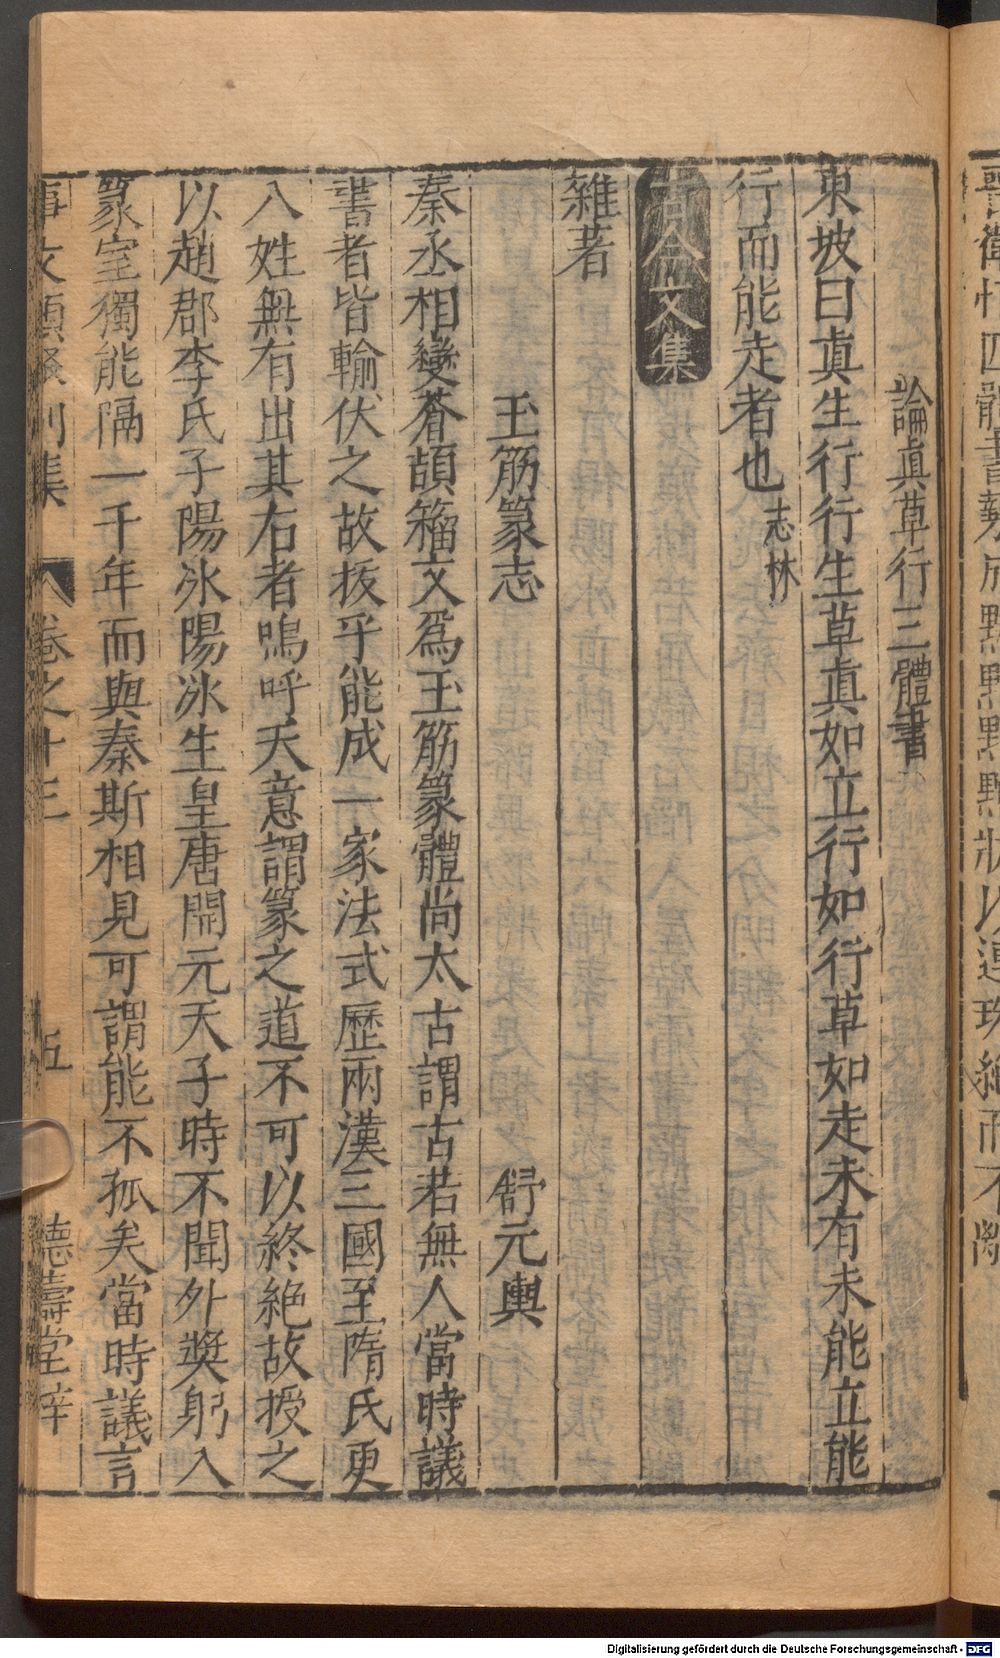 論真草行三體書
東坡曰真生行行生草真如立行如行草如走未有未能立能
行而能走者也志林
古今文集
雜著
玉筯篆志 舒元輿
秦丞相變蒼頡籀文爲玉筯篆體尚太古謂古若無人當時議
書者皆輸伏之故拔乎能成一家法式歷兩漢三國至隋氏更
八姓無有出其右者嗚呼天意謂篆之道不可以終絶故授之
以趙郡李氏子陽冰陽冰生皇唐開元天子時不聞外奬躬入
篆室獨能隔一千年而與秦斯相見可謂能不孤矣當時議言
事文類聚別集 卷之十三 五 德壽堂梓
四體書勢 成點點點點狀以連珠 而不
Digitalisierung gefördert durch die Deutsche Forschungsgemeinschaft - DFG